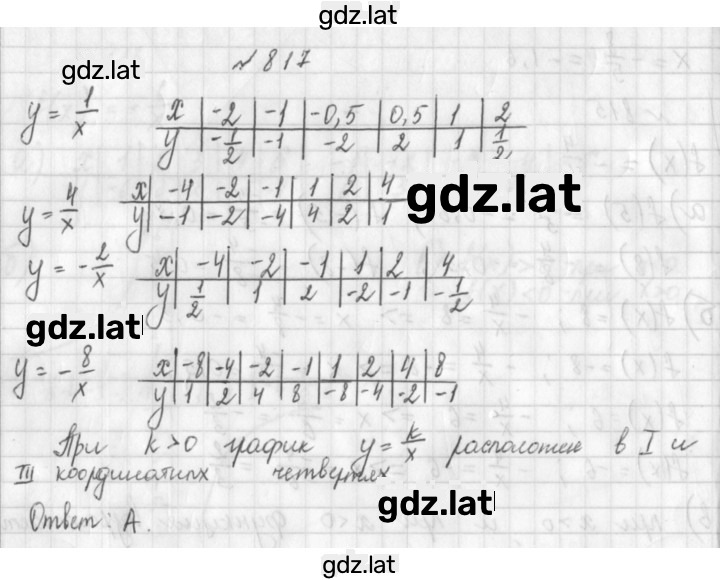 gdz.lat
gdz.lat
№ 817
y = 1/x x | -2 | -1 | -0,5 | 0,5 | 1 | 2
y | -1/2 | -1 | -2 | 2 | 1 | 1/2
y = 4/x x | -4 | -2 | -1 | 1 | 2 | 4
y | -1 | -2 | -4 | 4 | 2 | 1
gdz.lat
y = -2/x x | -4 | -2 | -1 | 1 | 2 | 4
y | 1/2 | 1 | 2 | -2 | -1 | -1/2
gdz.lat
y = -8/x x | -8 | -4 | -2 | -1 | 1 | 2 | 4 | 8
y | 1 | 2 | 4 | 8 | -8 | -4 | -2 | -1
При k>0 график y = k/x расположен в I и
III координатных четвертях
gdz.lat
Ответ: А.
gdz.lat